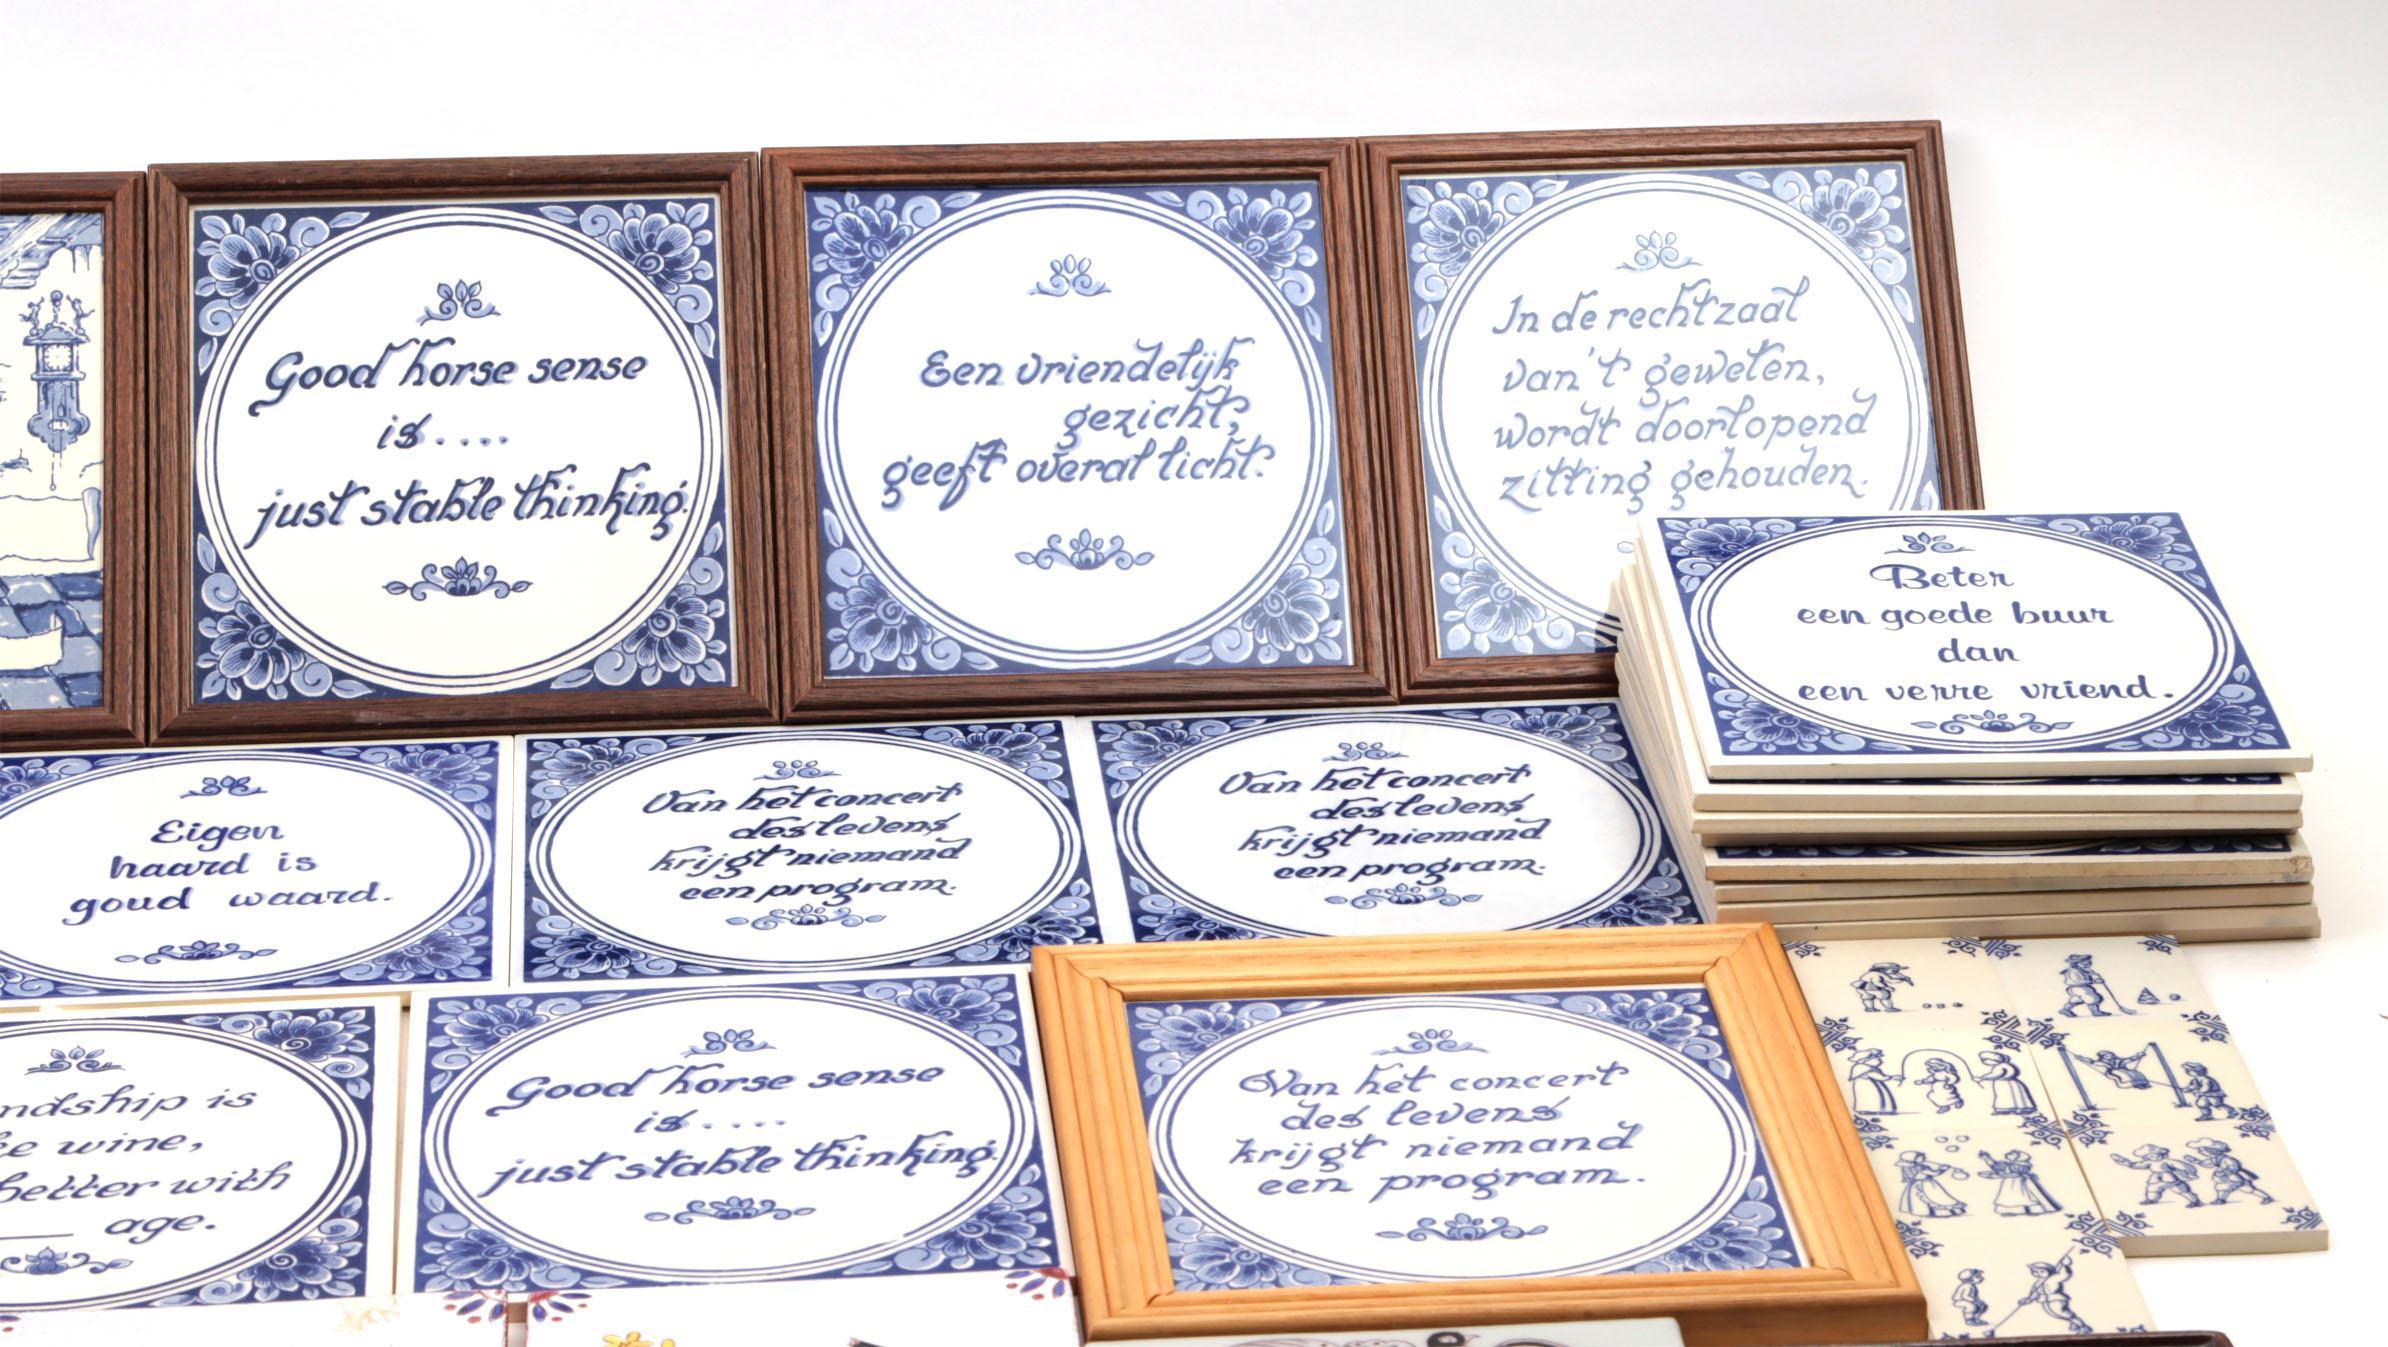 Good horse sense
is....
just stable thinking.
Een vriendelijk
gezicht,
geeft overal licht.
In de rechtzaal
van 't geweten,
wordt doorlopend
zitting gehouden.
Beter
een goede buur
dan
een verre vriend.
Eigen
haard is
goud waard.
Van het concert
des levens
krijgt niemand
een program.
Van het concert
des levens
krijgt niemand
een program.
ndship is
wine,
better with
age.
Good horse sense
is....
just stable thinking.
Van het concert
des levens
krijgt niemand
een program.